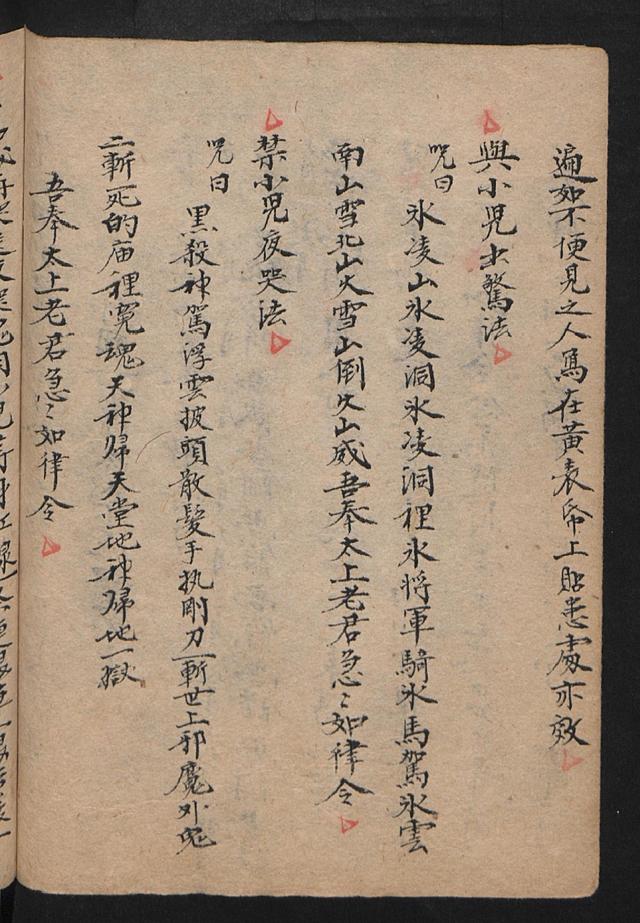 遍如不便見之人寫在黃表帋上貼患處亦效
與小児土驚法
咒曰 氷凌山氷凌洞氷凌洞裡氷將軍騎氷馬駕氷雲
南山雪北山火雪山倒火山威吾奉太上老君急〻如律令
禁小児夜哭法
咒曰 黑殺神駕浮雲披頭散髮手执剛刀一斬世上邪魔外鬼
二斬死的庙裡寃魂天神歸天堂地神歸地獄
吾奉太上老君急〻如律令